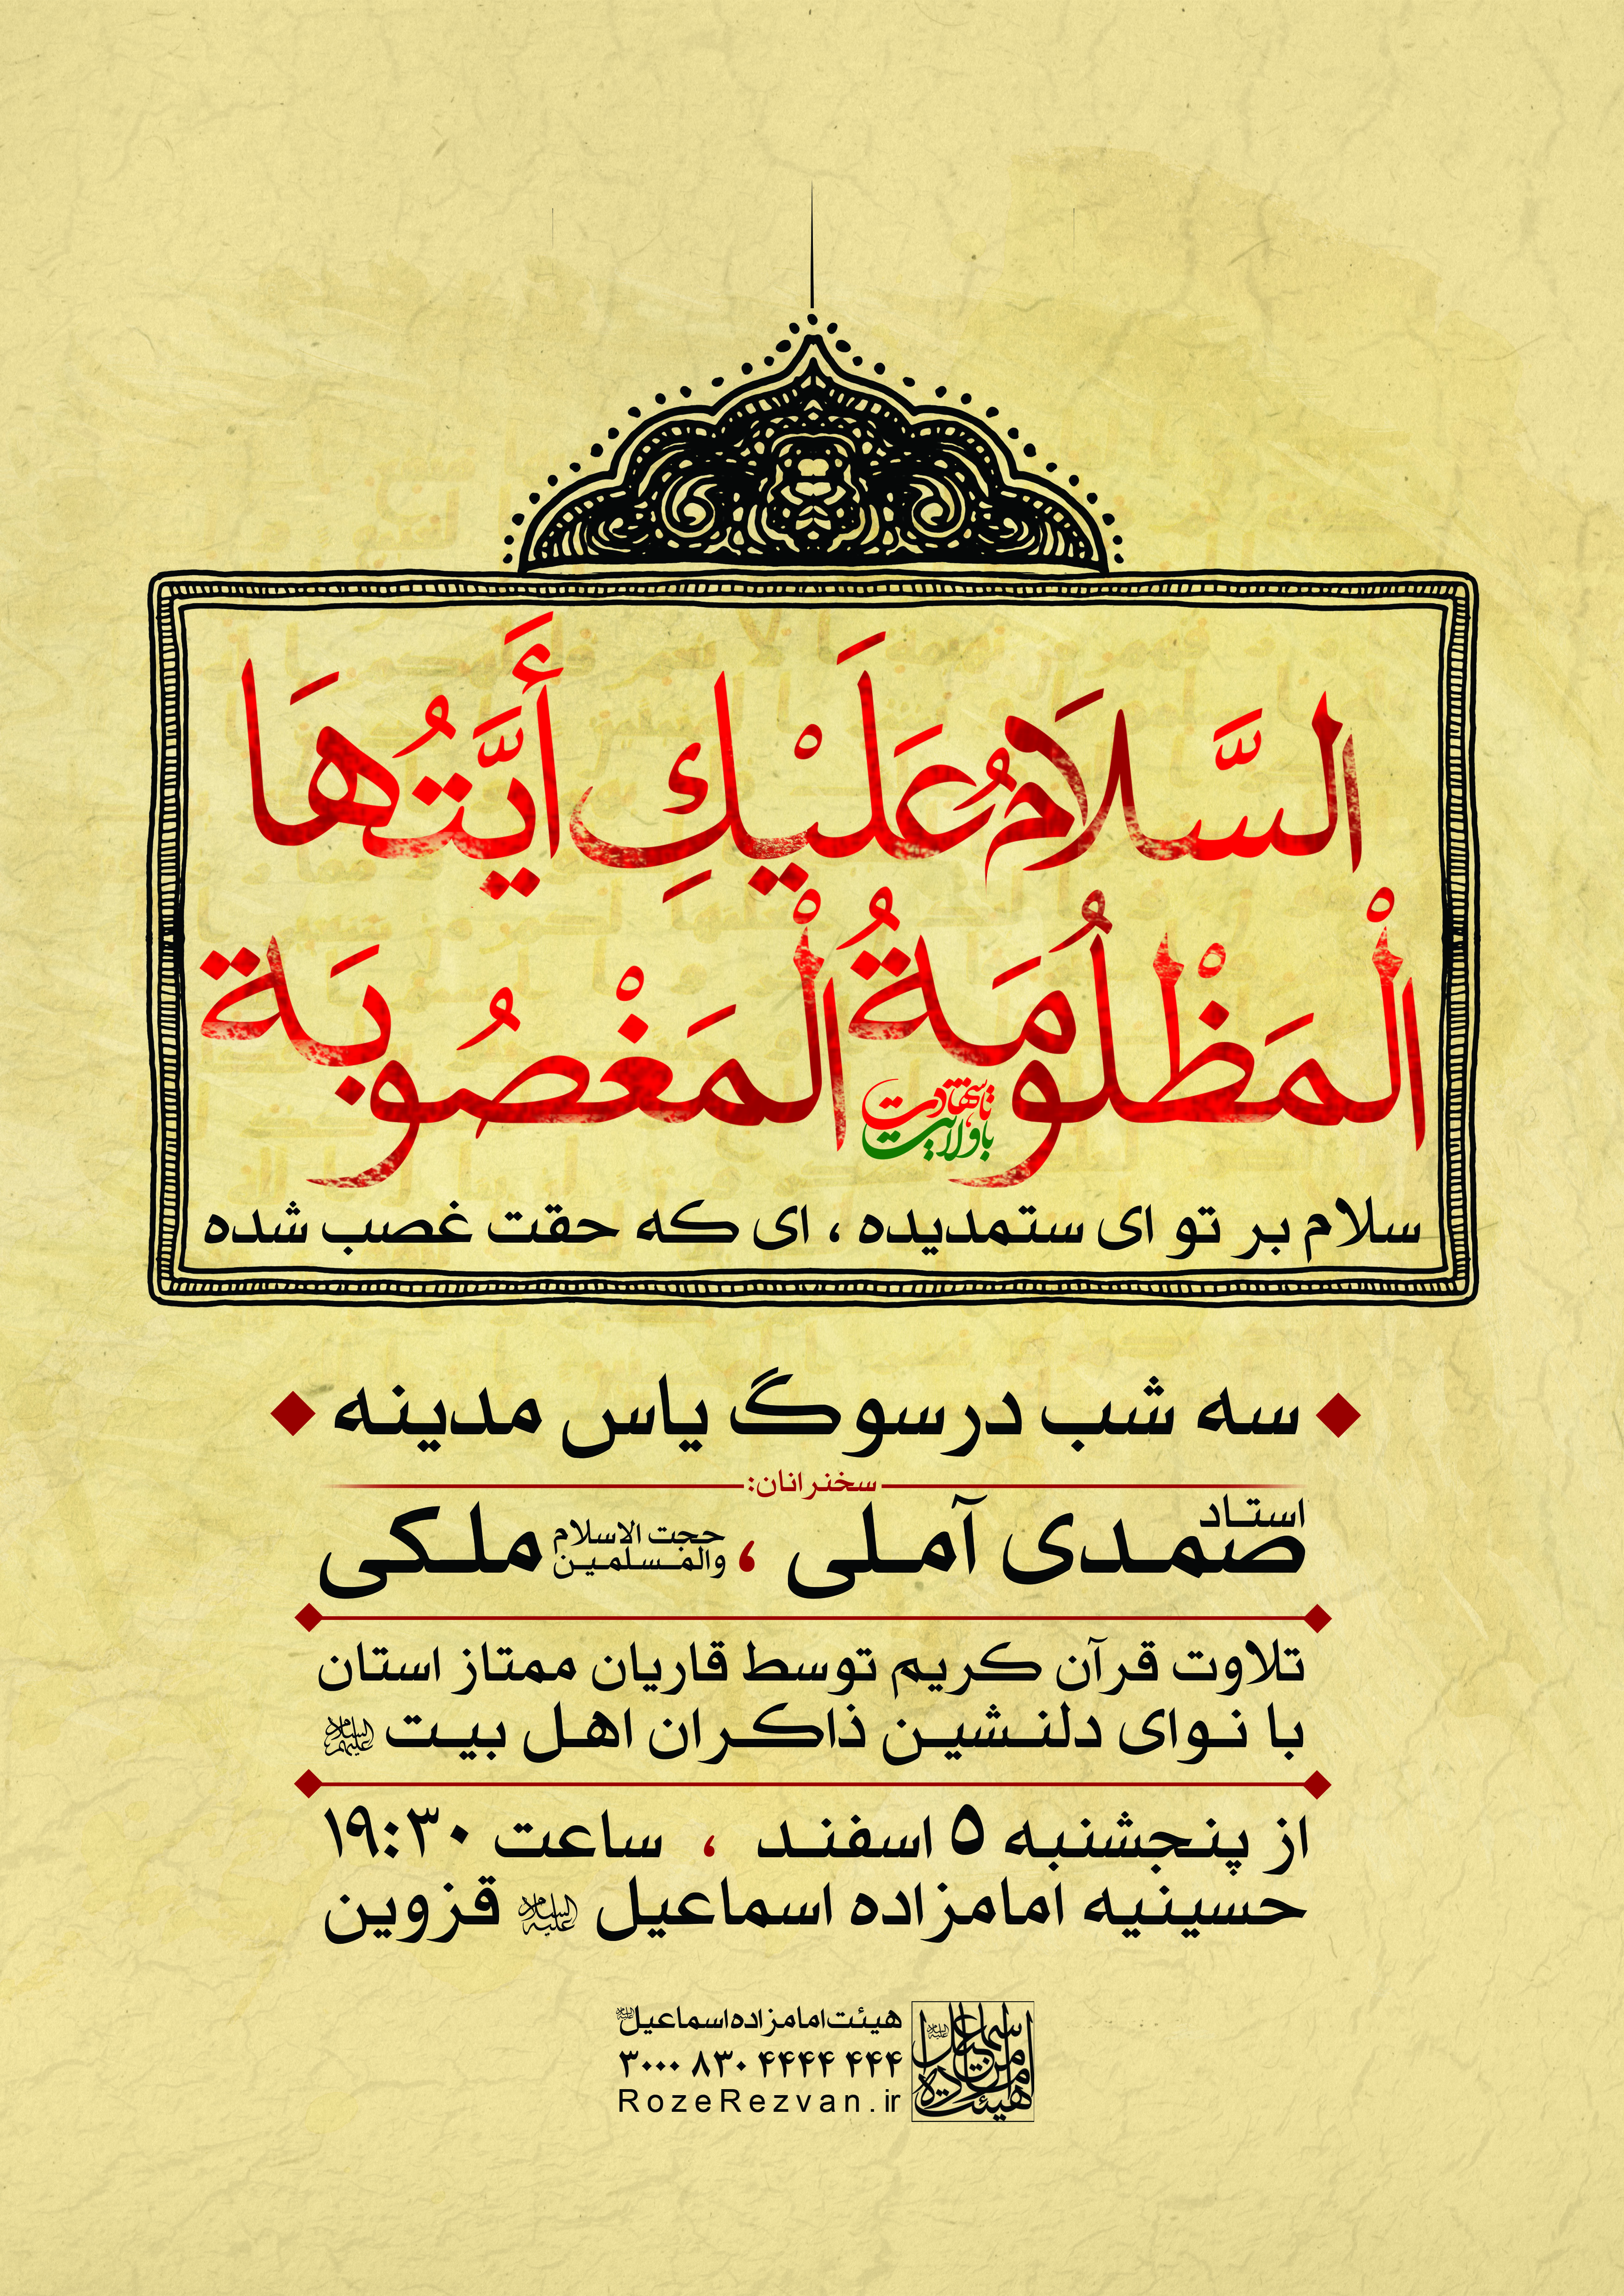 السَّلَامُ عَلَیْكِ أَیَّتُهَا
الْمَظْلُومَةُ الْمَغْصُوبَة
با ولایت
تا شهادت
سلام بر تو ای ستمدیده ، ای که حقت غصب شده
سه شب در سوگ یاس مدینه
سخنرانان:
استاد صمدی آملی ، حجت الاسلام والمسلمین ملکی
تلاوت قرآن کریم توسط قاریان ممتاز استان
با نوای دلنشین ذاکران اهل بیت علیهم السلام
از پنجشنبه ۵ اسفند ، ساعت ۱۹:۳۰
حسینیه امامزاده اسماعیل علیه السلام قزوین
هیئت امامزاده اسماعیل علیه السلام
۳۰۰۰ ۸۳۰ ۴۴۴۴ ۴۴۴
RozeRezvan.ir
هیئت امامزاده اسماعیل علیه السلام